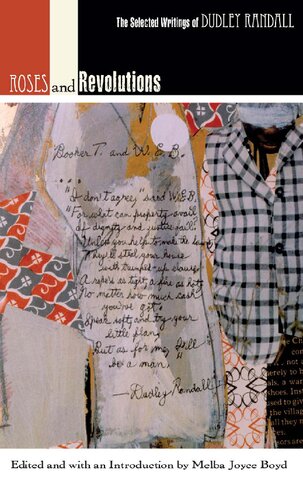 The Selected Writings of DUDLEY RANDALL
ROSES and Revolutions
Booker T. and W. E. B.
"I don't agree," said W.E.B.
"For what can property avail
if dignity and justice fail?
Unless you help to make the laws
They'll steal your house
with trumped-up clause.
A rope's as tight, a fire as hot,
No matter how much cash
you've got.
Speak soft, and try your
little plan,
But as for me, I'll
be a man."
—Dudley Randall
not
to
a
used to
the
all they
Edited and with an Introduction by Melba Joyce Boyd